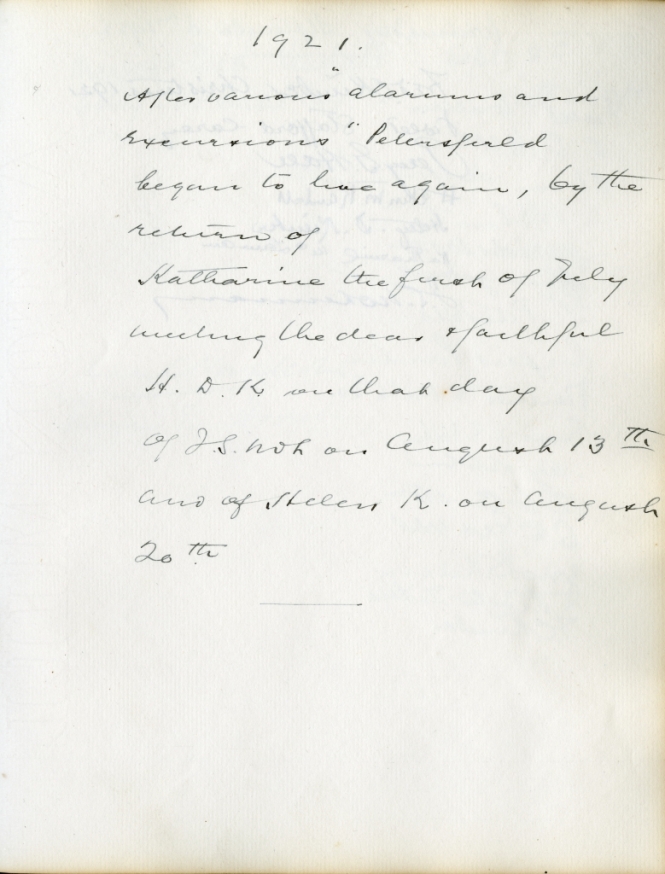 1921.
After various "alarums and
excursions" Petersfield
began to live again, by the
return of
Katharine the first of July
meeting the dear & faithful
H. D. K. on that day
of J.S. on August 13th
and of Helen K. on August
20th